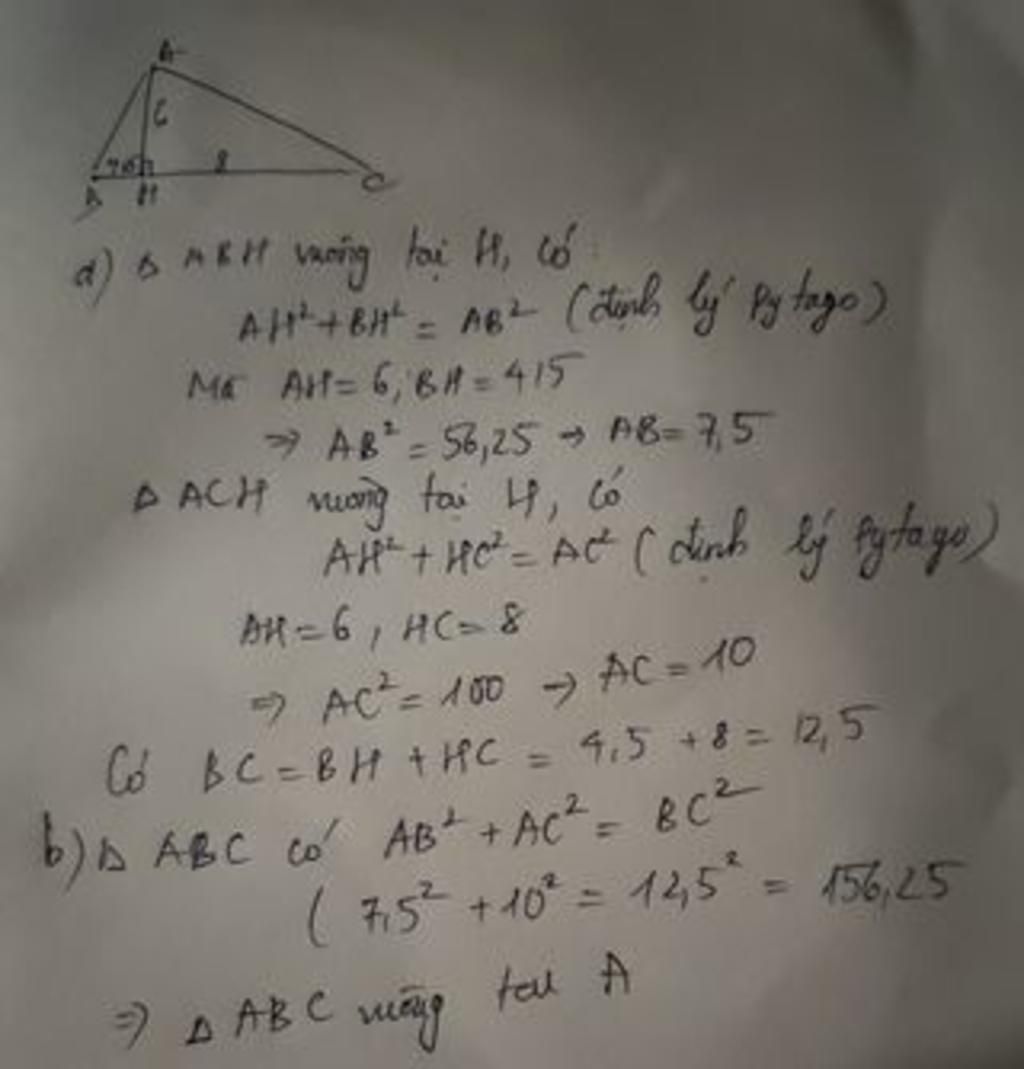 A
6
4,5
8
B H C
a) Δ ABH vuông tại H, có:
AH² + BH² = AB² (định lý Pytago)
Mà AH = 6, BH = 4,5
⇒ AB² = 56,25 → AB = 7,5
Δ ACH vuông tại H, có
AH² + HC² = AC² (định lý Pytago)
AH = 6, HC = 8
⇒ AC² = 100 → AC = 10
Có BC = BH + HC = 4,5 + 8 = 12,5
b) Δ ABC có AB² + AC² = BC²
( 7,5² + 10² = 12,5² = 156,25
⇒ Δ ABC vuông tại A